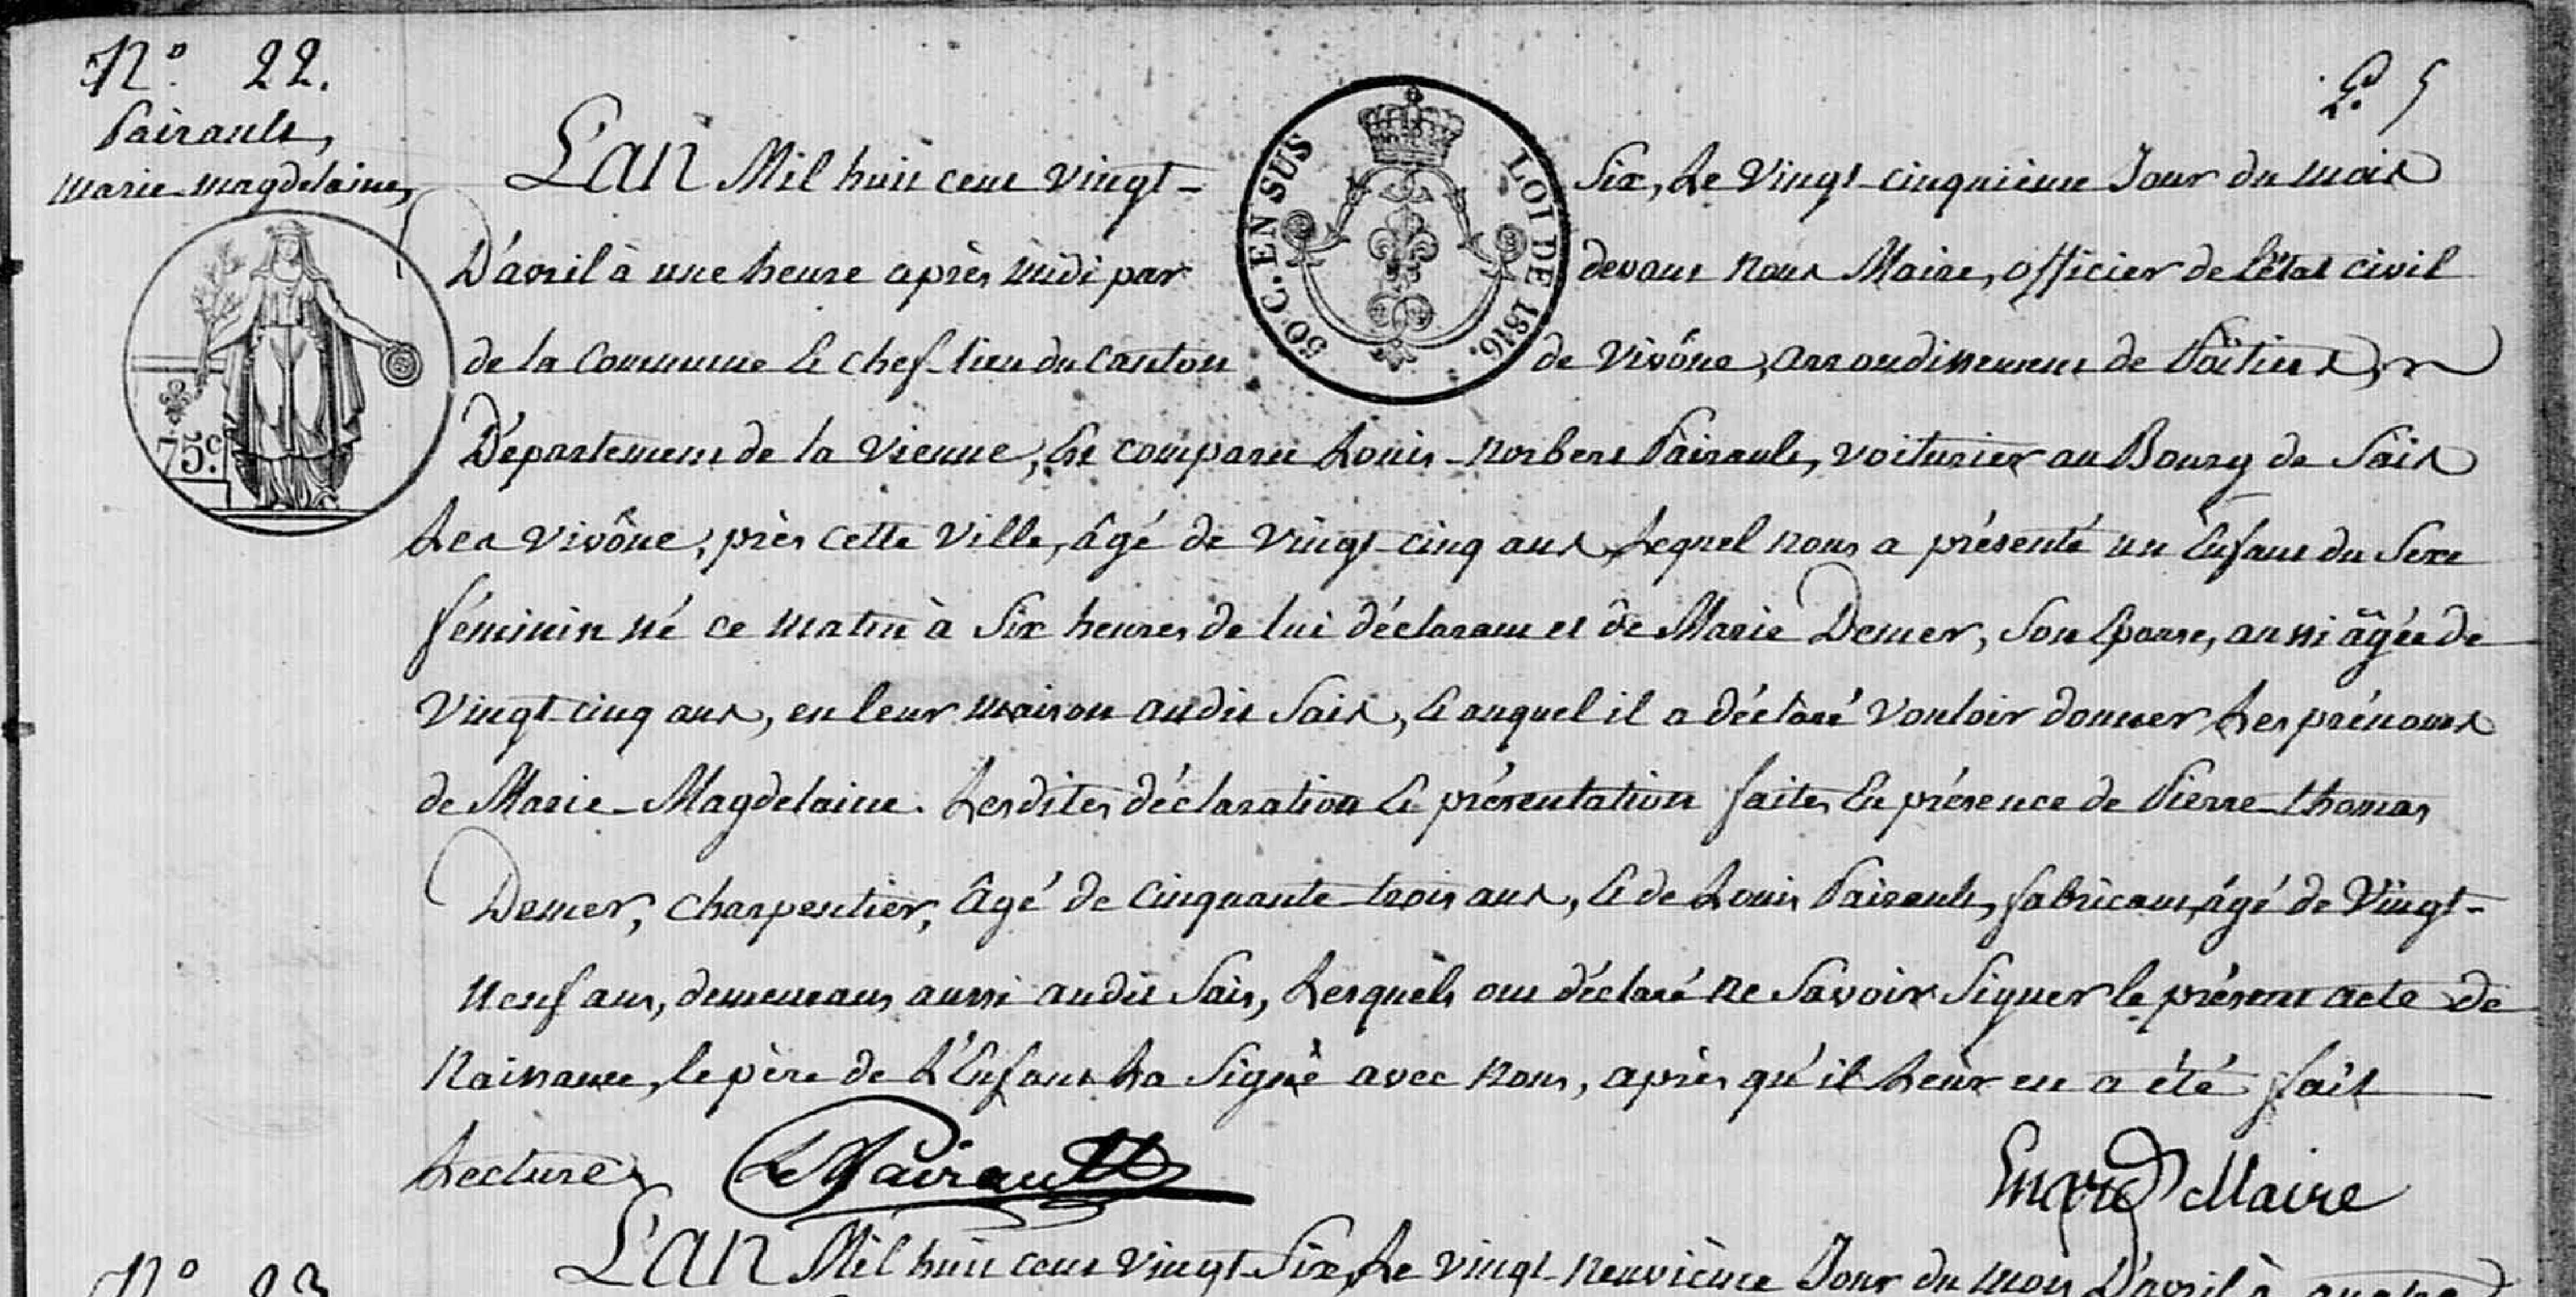 N.° 22.
Pairault,
marie-magdelaine,
75.c
50 C. EN SUS
LOI DE 1816.
5
L'an Mil huit cent vingt-six, Le vingt-cinquième Jour du mois
D'avril à une heure après midi par devant nous Maire, officier de l'état civil
de la Commune & chef-lieu du Canton de Vivône, arrondissement de Poitiers,
Département de la Vienne, Est comparu Louis-norbert Pairault, voiturier au Bourg de Sais
Les vivône, près cette ville, âgé de vingt-cinq ans, Lequel nous a présenté un Enfant du Sexe
féminin né ce matin à Six heures de lui déclarant et de Marie Demer, Son Epouse, aussi âgée de
Vingt-cinq ans, en leur maison audit Sais, & auquel il a déclaré vouloir donner Les prénoms
de Marie-Magdelaine. Lesdites déclaration & présentation faites En présence de Pierre-thomas
Demer, charpentier, âgé de cinquante-trois ans, & de Louis Pairault, fabricant, âgé de Vingt-
neuf ans, demeurans aussi audit Sais, Lesquels ont déclaré ne Savoir Signer le présent acte de
Naissance, le père de L'Enfant La Signé avec nous, après qu'il Leur en a été fait
Lecture.
Le Pairault
Maire
N.° 23
L'an Mil huit cent vingt-Six, Le vingt-neuvième Jour du mois D'avril à